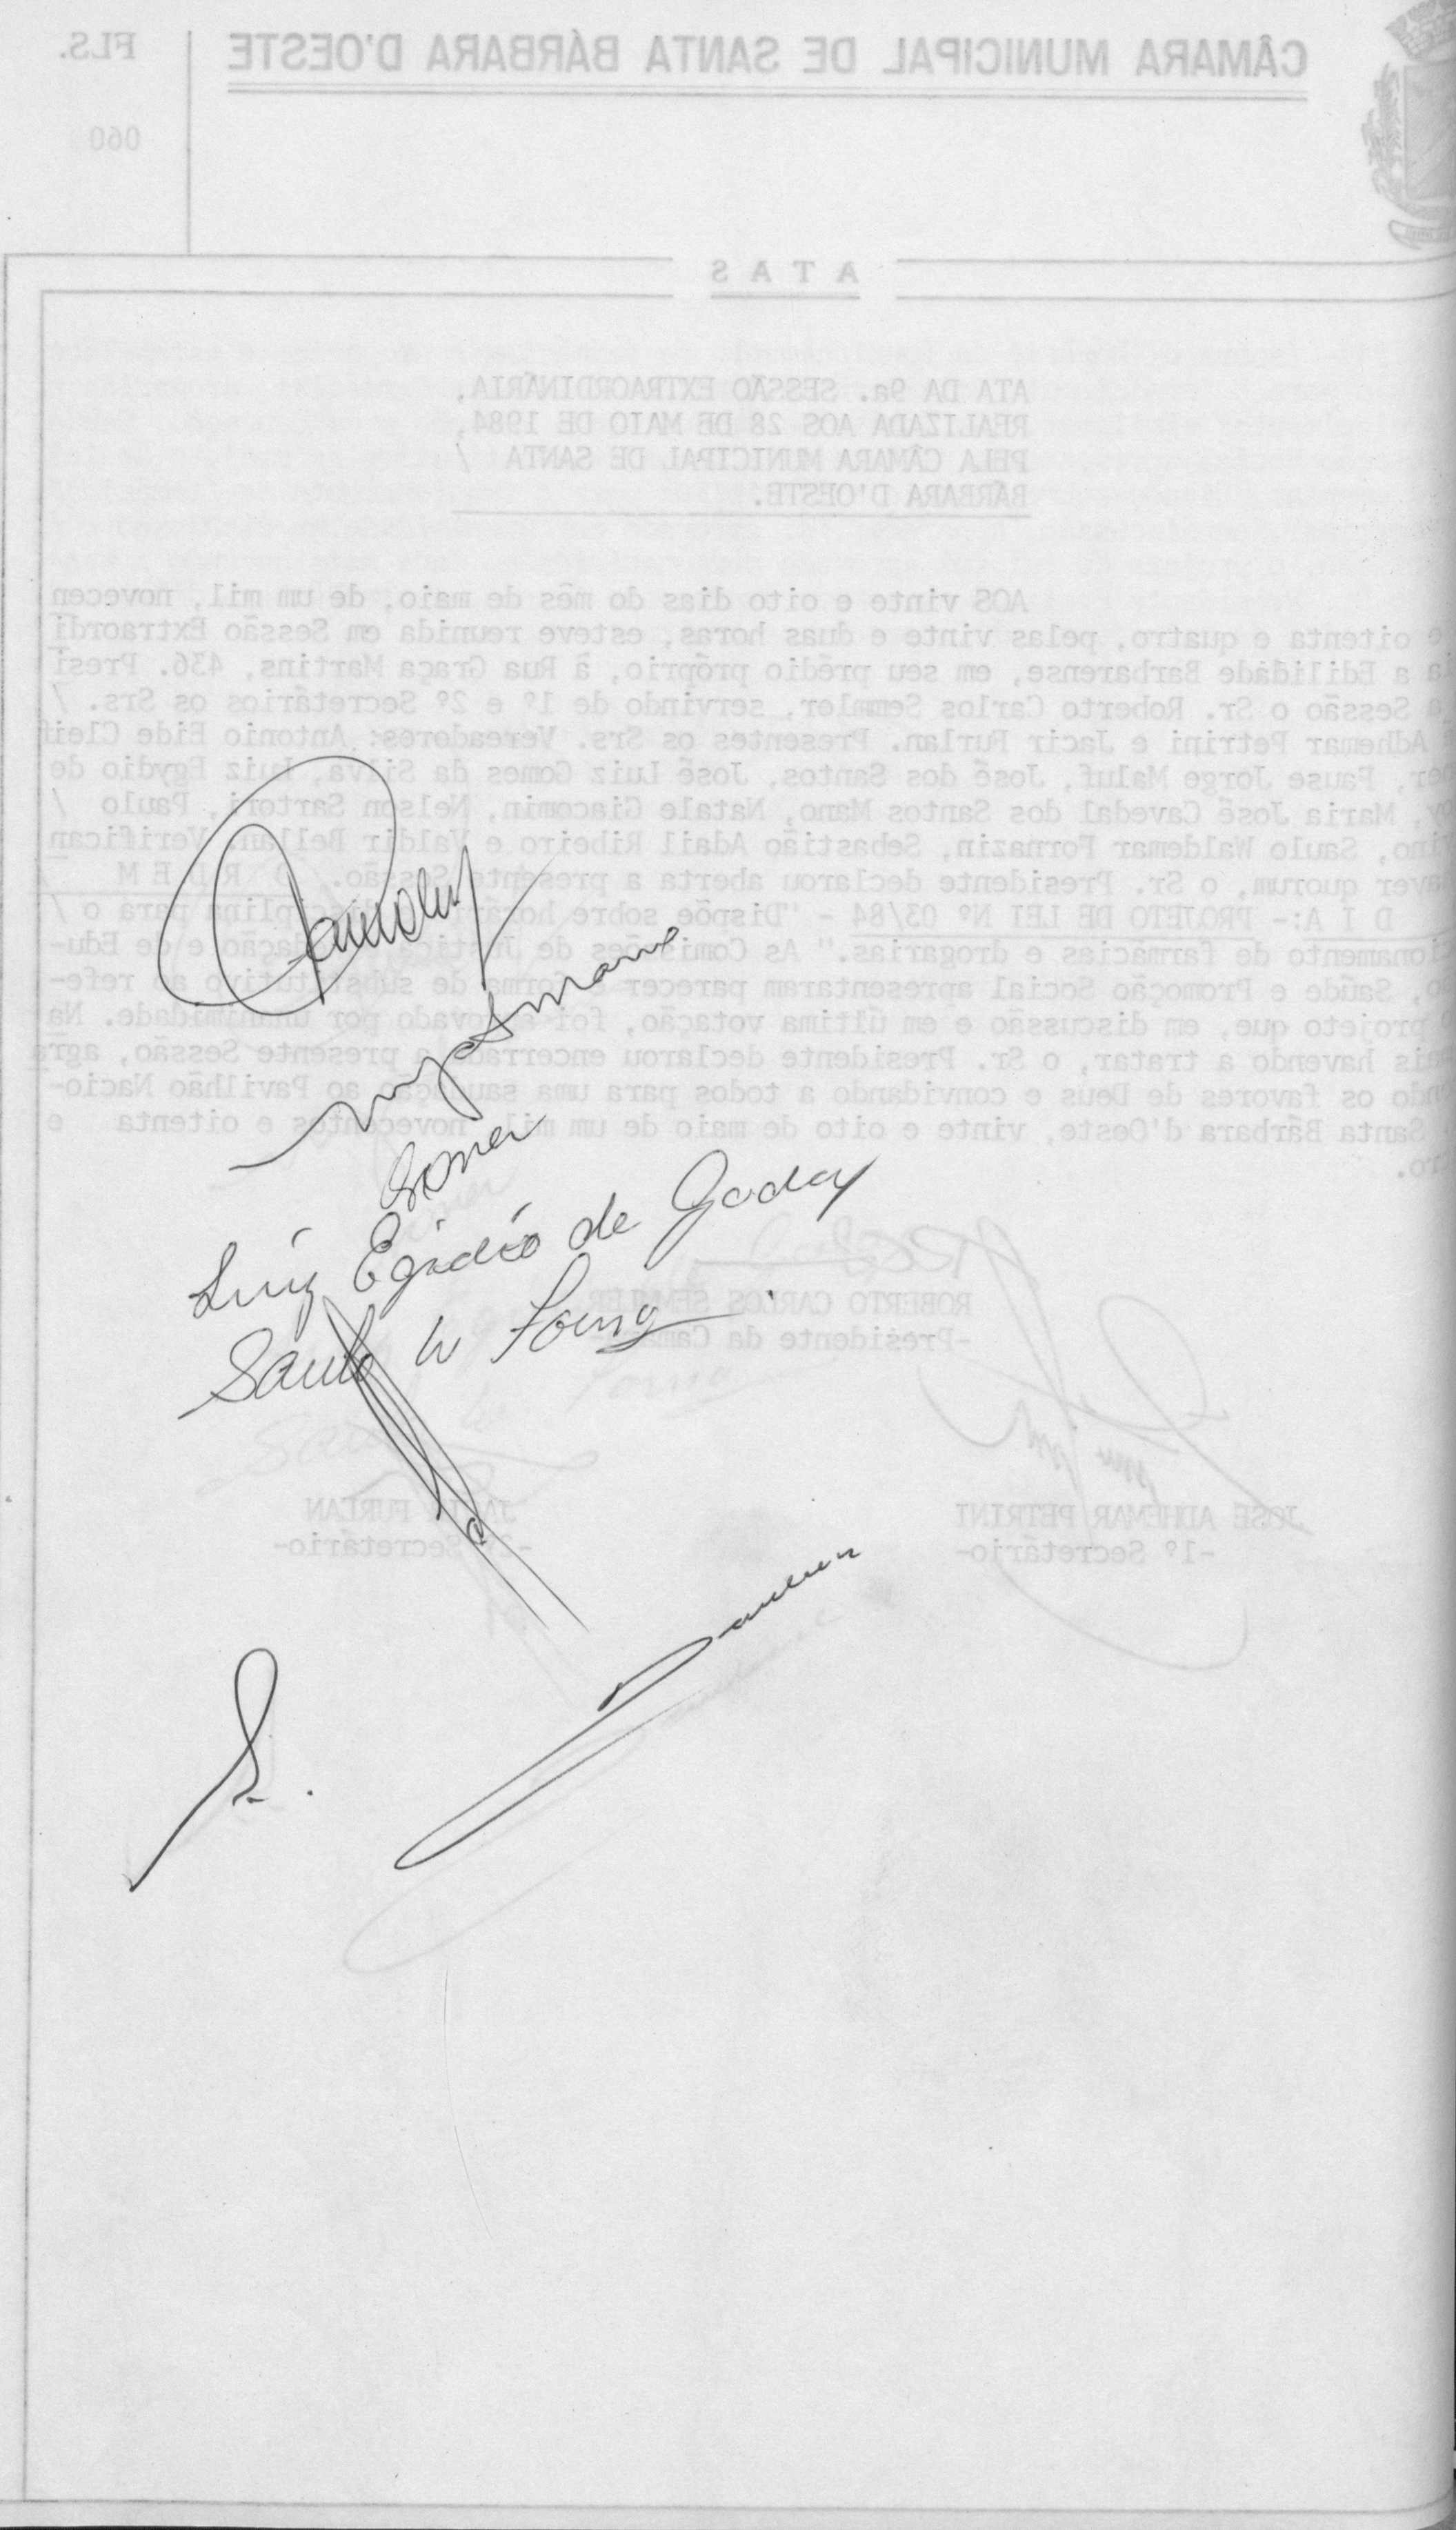 CÂMARA MUNICIPAL DE SANTA BÁRBARA D'OESTE
FLS.
060
ATAS
ATA DA 9a. SESSÃO EXTRAORDINÁRIA,
REALIZADA AOS 28 DE MAIO DE 1984,
PELA CÂMARA MUNICIPAL DE SANTA /
BÁRBARA D'OESTE.
AOS vinte e oito dias do mês de maio, de um mil, novecen
e oitenta e quatro, pelas vinte e duas horas, esteve reunida em Sessão Extraordi
a a Edilidade Barbarense, em seu prédio próprio, à Rua Graça Martins, 436. Presi
a Sessão o Sr. Roberto Carlos Semmler, servindo de 1º e 2º Secretários os Srs. /
Adhemar Petrini e Jacir Furlan. Presentes os Srs. Vereadores: Antonio Eide Cleif
er, Fause Jorge Maluf, José dos Santos, José Luiz Gomes da Silva, Luiz Egydio de
y, Maria José Cavedal dos Santos Mano, Natale Giacomin, Nelson Sartori, Paulo /
ino, Saulo Waldemar Fornazin, Sebastião Adail Ribeiro e Valdir Bellan. Verifican
aver quorum, o Sr. Presidente declarou aberta a presente Sessão. O R D E M /
D I A:- PROJETO DE LEI Nº 03/84 - "Dispõe sobre horário e disciplina para o /
ionamento de farmácias e drogarias." As Comissões de Justiça e Redação e de Edu-
o, Saúde e Promoção Social apresentaram parecer e forma de substitutivo ao refe-
projeto que, em discussão e em última votação, foi aprovado por unanimidade. Na
is havendo a tratar, o Sr. Presidente declarou encerrada a presente Sessão, agra
ndo os favores de Deus e convidando a todos para uma saudação ao Pavilhão Nacio-
Santa Bárbara d'Oeste, vinte e oito de maio de um mil, novecentos e oitenta e
ro.
Luiz Egidio de Godoy
ROBERTO CARLOS SEMMLER
-Presidente da Câmara-
Saulo W
JOSÉ ADHEMAR PETRINI
JACIR FURLAN
-1º Secretário-
-2º Secretário-